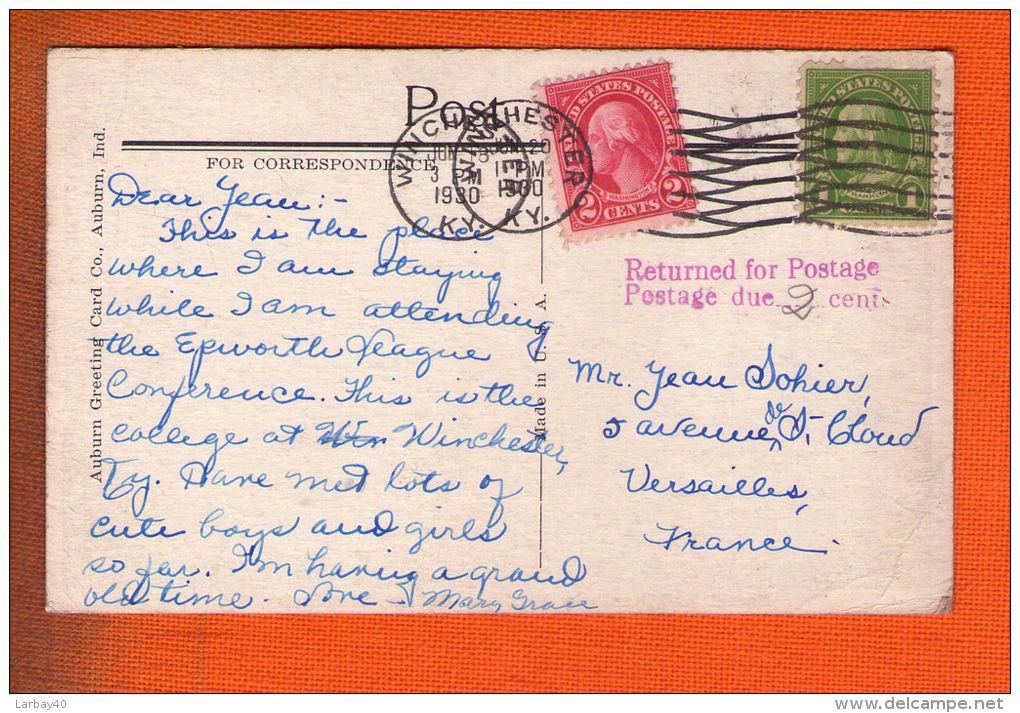 Post
FOR CORRESPONDENCE
Auburn Greeting Card Co., Auburn, Ind.
Made in U. S. A.
WINCHESTER
JUN 20
PM
1930
KY.
3 PM
1930
KY.
UNITED STATES POSTAGE
WASHINGTON
2 CENTS 2
STATES POSTAGE
FRANKLIN
1
Returned for Postage
Postage due 2 cents
Dear Jean:-
This is the place
where I am staying
while I am attending
the Epworth League
Conference. This is the
college at Winchester,
Ky. Have met lots of
cute boys and girls
so far. I'm having a grand
old time. Love - Mary Grace
Mr. Jean Sohier,
5 avenue de St. Cloud
Versailles,
France.
Larbay40
delcampe.net